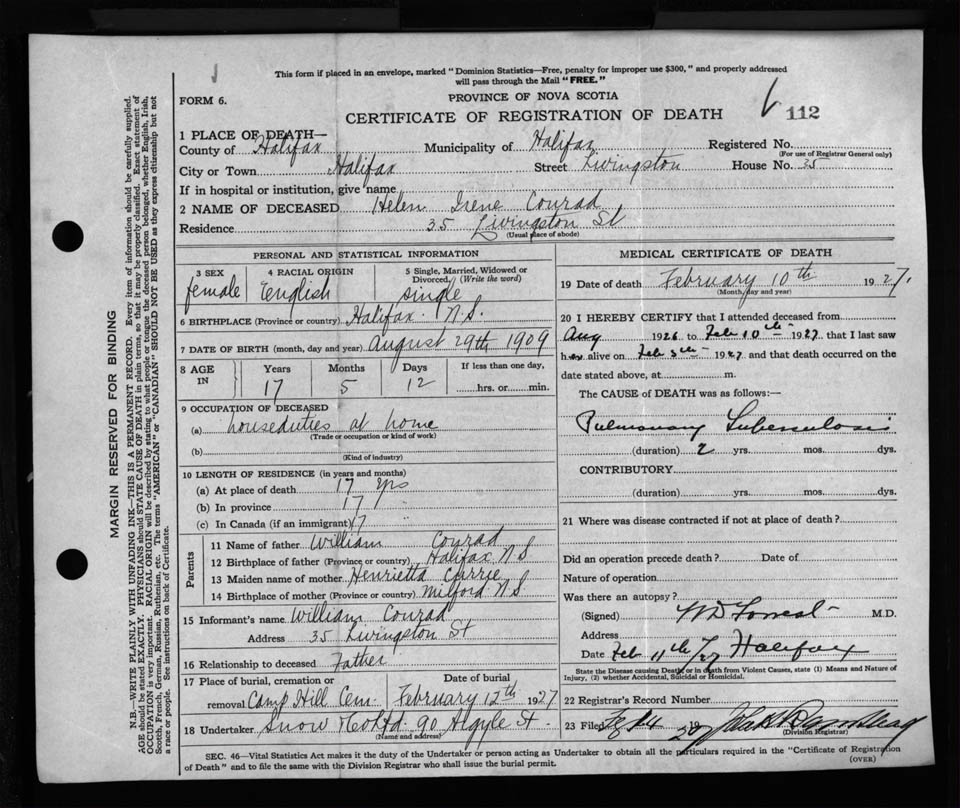 This form if placed in an envelope, marked "Dominion Statistics—Free, penalty for improper use $300," and properly addressed
will pass through the Mail "FREE."
FORM 6.
PROVINCE OF NOVA SCOTIA
CERTIFICATE OF REGISTRATION OF DEATH
112
1 PLACE OF DEATH—
County of Halifax Municipality of Halifax Registered No.
(For use of Registrar General only)
City or Town Halifax Street Livingston House No. 35
If in hospital or institution, give name
2 NAME OF DECEASED Helen Irene Conrad
Residence 35 Livingston St
(Usual place of abode)
PERSONAL AND STATISTICAL INFORMATION
3 SEX 4 RACIAL ORIGIN 5 Single, Married, Widowed or
Divorced. (Write the word)
female English single
6 BIRTHPLACE (Province or country) Halifax N.S.
7 DATE OF BIRTH (month, day and year) August 29th 1909
8 AGE IN Years Months Days If less than one day,
17 5 12 hrs. or min.
9 OCCUPATION OF DECEASED
(a) houseduties at home
(Trade or occupation or kind of work)
(b)
(Kind of industry)
10 LENGTH OF RESIDENCE (in years and months)
(a) At place of death 17 yrs
(b) In province 17 "
(c) In Canada (if an immigrant) 17 "
Parents
11 Name of father William Conrad
12 Birthplace of father (Province or country) Halifax N S
13 Maiden name of mother Henrietta Currie
14 Birthplace of mother (Province or country) Milford N S
15 Informant's name William Conrad
Address 35 Livingston St
16 Relationship to deceased Father
17 Place of burial, cremation or removal Camp Hill Cem Date of burial February 12th 1927
18 Undertaker Snow & Co Ltd 90 Argyle St
(Name and address)
MEDICAL CERTIFICATE OF DEATH
19 Date of death February 10th 1927.
(Month, day and year)
20 I HEREBY CERTIFY that I attended deceased from
Aug 1926 to Feb 10th 1927, that I last saw
her alive on Feb 1927 and that death occurred on the
date stated above, at m.
The CAUSE of DEATH was as follows:—
Pulmonary Tuberculosis
(duration) 2 yrs. mos. dys.
CONTRIBUTORY
(duration) yrs. mos. dys.
21 Where was disease contracted if not at place of death?
Did an operation precede death? Date of
Nature of operation
Was there an autopsy?
(Signed) W D Forrest M.D.
Address
Date Feb 11th/27 Halifax
State the Disease causing Death, or in death from Violent Causes, state (1) Means and Nature of
Injury, (2) whether Accidental, Suicidal or Homicidal.
22 Registrar's Record Number
23 Filed 19
(Division Registrar)
SEC. 46—Vital Statistics Act makes it the duty of the Undertaker or person acting as Undertaker to obtain all the particulars required in the "Certificate of Registration
of Death" and to file the same with the Division Registrar who shall issue the burial permit.
(OVER)
MARGIN RESERVED FOR BINDING
N.B.—WRITE PLAINLY WITH UNFADING INK—THIS IS A PERMANENT RECORD. Every item of information should be carefully supplied.
AGE should be stated EXACTLY. PHYSICIANS should STATE CAUSE OF DEATH in plain terms, so that it may be properly classified. Exact statement of
OCCUPATION is very important. RACIAL ORIGIN will be described by stating to what people or tongue the deceased person belonged, whether English, Irish,
Scotch, French, German, Russian, Ruthenian, etc. The terms "AMERICAN" or "CANADIAN" SHOULD NOT BE USED as they express citizenship but not
a race or people. See instructions on back of Certificate.